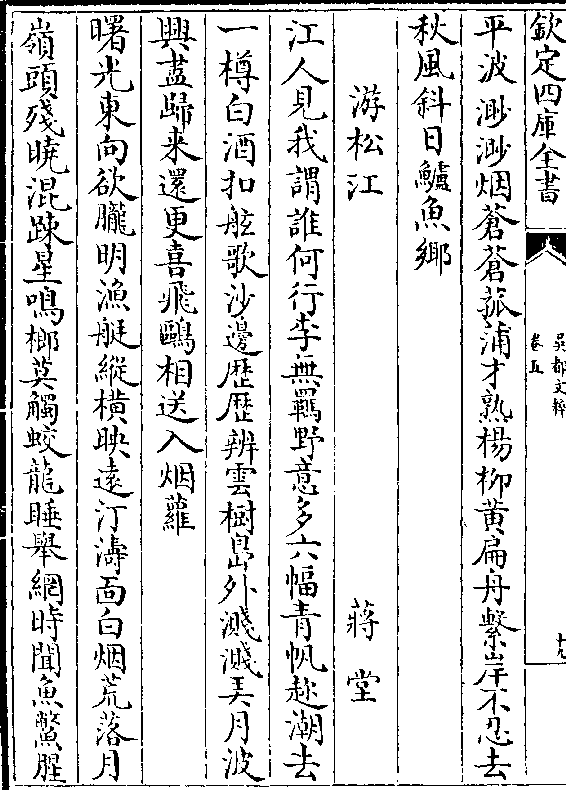 欽定四庫全書
吳都文粹
卷五
十九
平波渺渺烟蒼蒼菰蒲才熟楊柳黄扁舟繫岸不忍去
秋風斜日鱸魚鄉
游松江 蔣堂
江人見我謂誰何行李無羈野意多六幅青帆趂潮去
一樽白酒扣舷歌沙邊歴歴辨雲樹島外濺濺弄月波
興盡歸来還更喜飛鷗相送入烟蘿
曙光東向欲朧明漁艇縱橫映遠汀濤面白烟荒落月
嶺頭殘曉混踈星鳴榔莫觸蛟龍睡舉網時聞魚鱉腥